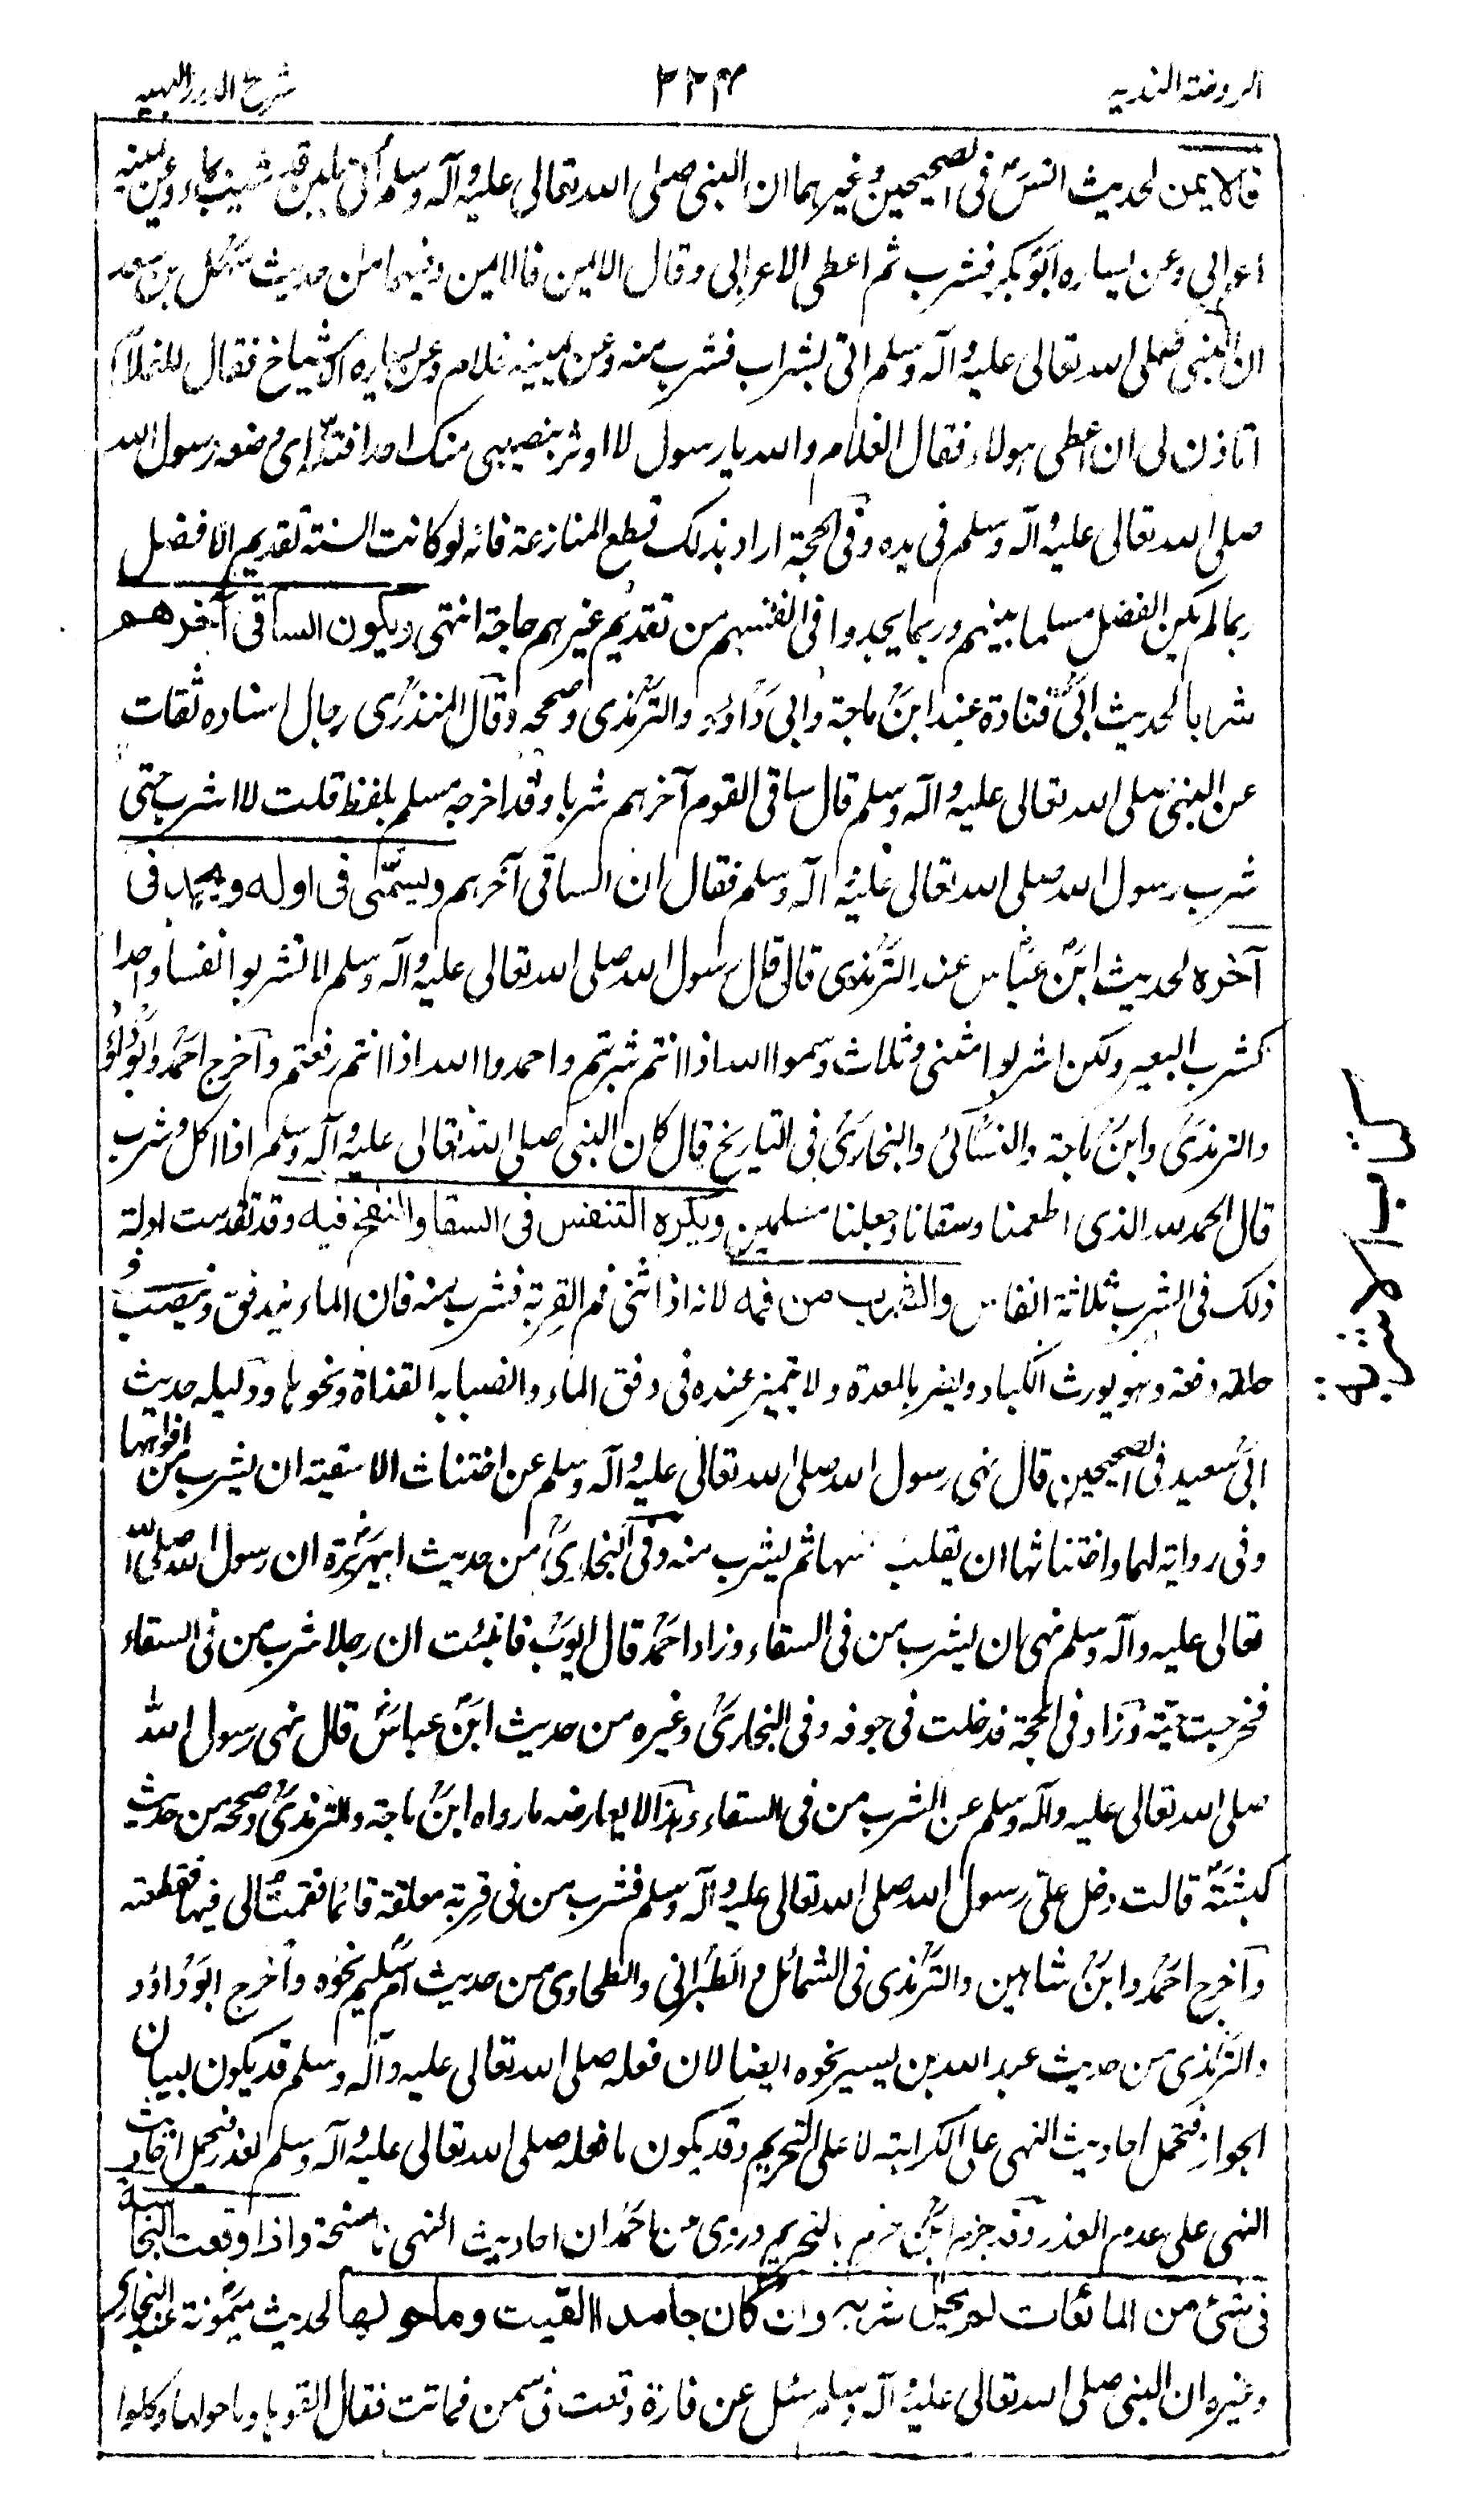 الروضة الندية ٢٢٤ شرح الدرر البهية
فالايمن لحديث انس فى الصحيحين وغيرهما ان النبى صلى الله تعالى عليه وآله وسلم اتى بلبن قد شيب بماء وعن يمينه
اعرابى وعن يساره ابو بكر فشرب ثم اعطى الاعرابى وقال الايمن فالايمن وفيهما من حديث سهل بن سعد
ان النبى صلى الله تعالى عليه وآله وسلم اتى بشراب فشرب منه وعن يمينه غلام وعن يساره الاشياخ فقال للغلام
اتاذن لى ان اعطى هولاء فقال الغلام والله يا رسول لا اوثر بنصيبى منك احدا فتله اى وضعه رسول الله
صلى الله تعالى عليه وآله وسلم فى يده وفى الحجة اراد بذلك قطع المنازعة فانه لو كانت السنة تقديم الافضل
ربما لم يكن الفضل مسلما بينهم وربما يجدوا فى انفسهم من تقديم غيرهم حاجة انتهى ويكون الساقى آخرهم
شربا لحديث ابى قتادة عند ابن ماجة وابى داود والترمذى وصححه وقال المنذرى رجال اسناده ثقات
عن النبى صلى الله تعالى عليه وآله وسلم قال ساقى القوم آخرهم شربا وقد اخرجه مسلم بلفظ قلت لا اشرب حتى
شرب رسول الله صلى الله تعالى عليه وآله وسلم فقال ان الساقى آخرهم ويسمّى فى اوله ويحمد فى
آخره لحديث ابن عباس عند الترمذى قال قال رسول الله صلى الله تعالى عليه وآله وسلم لا تشربوا نفسا واحدا
كشرب البعير ولكن اشربوا مثنى وثلاث وسموا الله اذا انتم شربتم واحمدوا الله اذا انتم رفعتم وآخرج احمد وابو داؤد
والترمذى وابن ماجة والنسائى والبخارى فى التاريخ قال كان النبى صلى الله تعالى عليه وآله وسلم اذا اكل وشرب
قال الحمد لله الذى اطعمنا وسقانا وجعلنا مسلمين ويكره التنفس فى السقا والنفخ فيه وقد تقدمت ادلة
ذلك فى الشرب ثلاثة انفاس والشرب من فمه لانه اذا ثنى فم القربة فشرب منه فان الماء يندفق وينصب فى
حلقه دفعة وهو يورث الكباد ويضر بالمعدة ولا يتميز عنده فى دفق الماء وانصبابه القذاة ونحوها ودليله حديث
ابى سعيد فى الصحيحين قال نهى رسول الله صلى الله تعالى عليه وآله وسلم عن اختناث الاسقية ان يشرب من افواهها
وفى رواية لهما واختناثها ان يقلب ثم يشرب منه وفى البخارى من حديث ابيهريرة ان رسول الله صلى الله
تعالى عليه وآله وسلم نهى ان يشرب من فى السقاء وزاد احمد قال ايوب فانبئت ان رجلا شرب من فى السقاء
فخرجت حية وزاد فى الحجة فدخلت فى جوفه وفى البخارى وغيره من حديث ابن عباس قال نهى رسول الله
صلى الله تعالى عليه وآله وسلم عن الشرب من فى السقاء وهذا لا يعارضه ما رواه ابن ماجة والترمذى وصححه من حديث
كبشة قالت دخل علىّ رسول الله صلى الله تعالى عليه وآله وسلم فشرب من فى قربة معلقة قائما فقمت الى فيها فقطعته
وآخرج احمد وابن شاهين والترمذى فى الشمائل والطبرانى والطحاوى من حديث ام سليم نحوه وآخرج ابو داؤد
والترمذى من حديث عبد الله بن يسير نحوه ايضا لان فعله صلى الله تعالى عليه وآله وسلم قد يكون لبيان
الجواز فتحمل احاديث النهى على الكراهة لا على التحريم وقد يكون ما فعله صلى الله تعالى عليه وآله وسلم لعذر فتحمل احاديث
النهى على عدم العذر وقد جزم ابن حزم بالتحريم وروى عن احمد ان احاديث النهى ناسخة واذا وقعت النجاسة
فى شئ من المائعات لم يحل شربه وان كان جامدا القيت وما حولها لحديث ميمونة عند البخارى
وغيره ان النبى صلى الله تعالى عليه وآله وسلم سئل عن فارة وقعت فى سمن فماتت فقال القوها وما حولها وكلوا
كتاب الاشربة